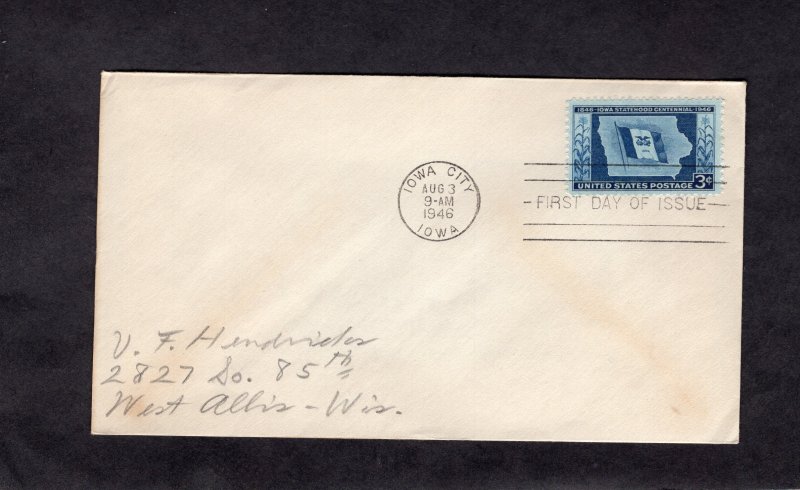 1846-IOWA STATEHOOD CENTENNIAL-1946
UNITED STATES POSTAGE 3¢
IOWA CITY
AUG 3
9-AM
1946
IOWA
FIRST DAY OF ISSUE
V. F. Hendricks
2827 So. 85th
West Allis - Wis.